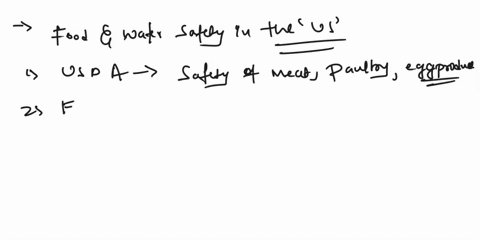 → Food & Water Safety in the 'US'
1) USDA → Safety of meat, Paultry, eggproduct
2) F